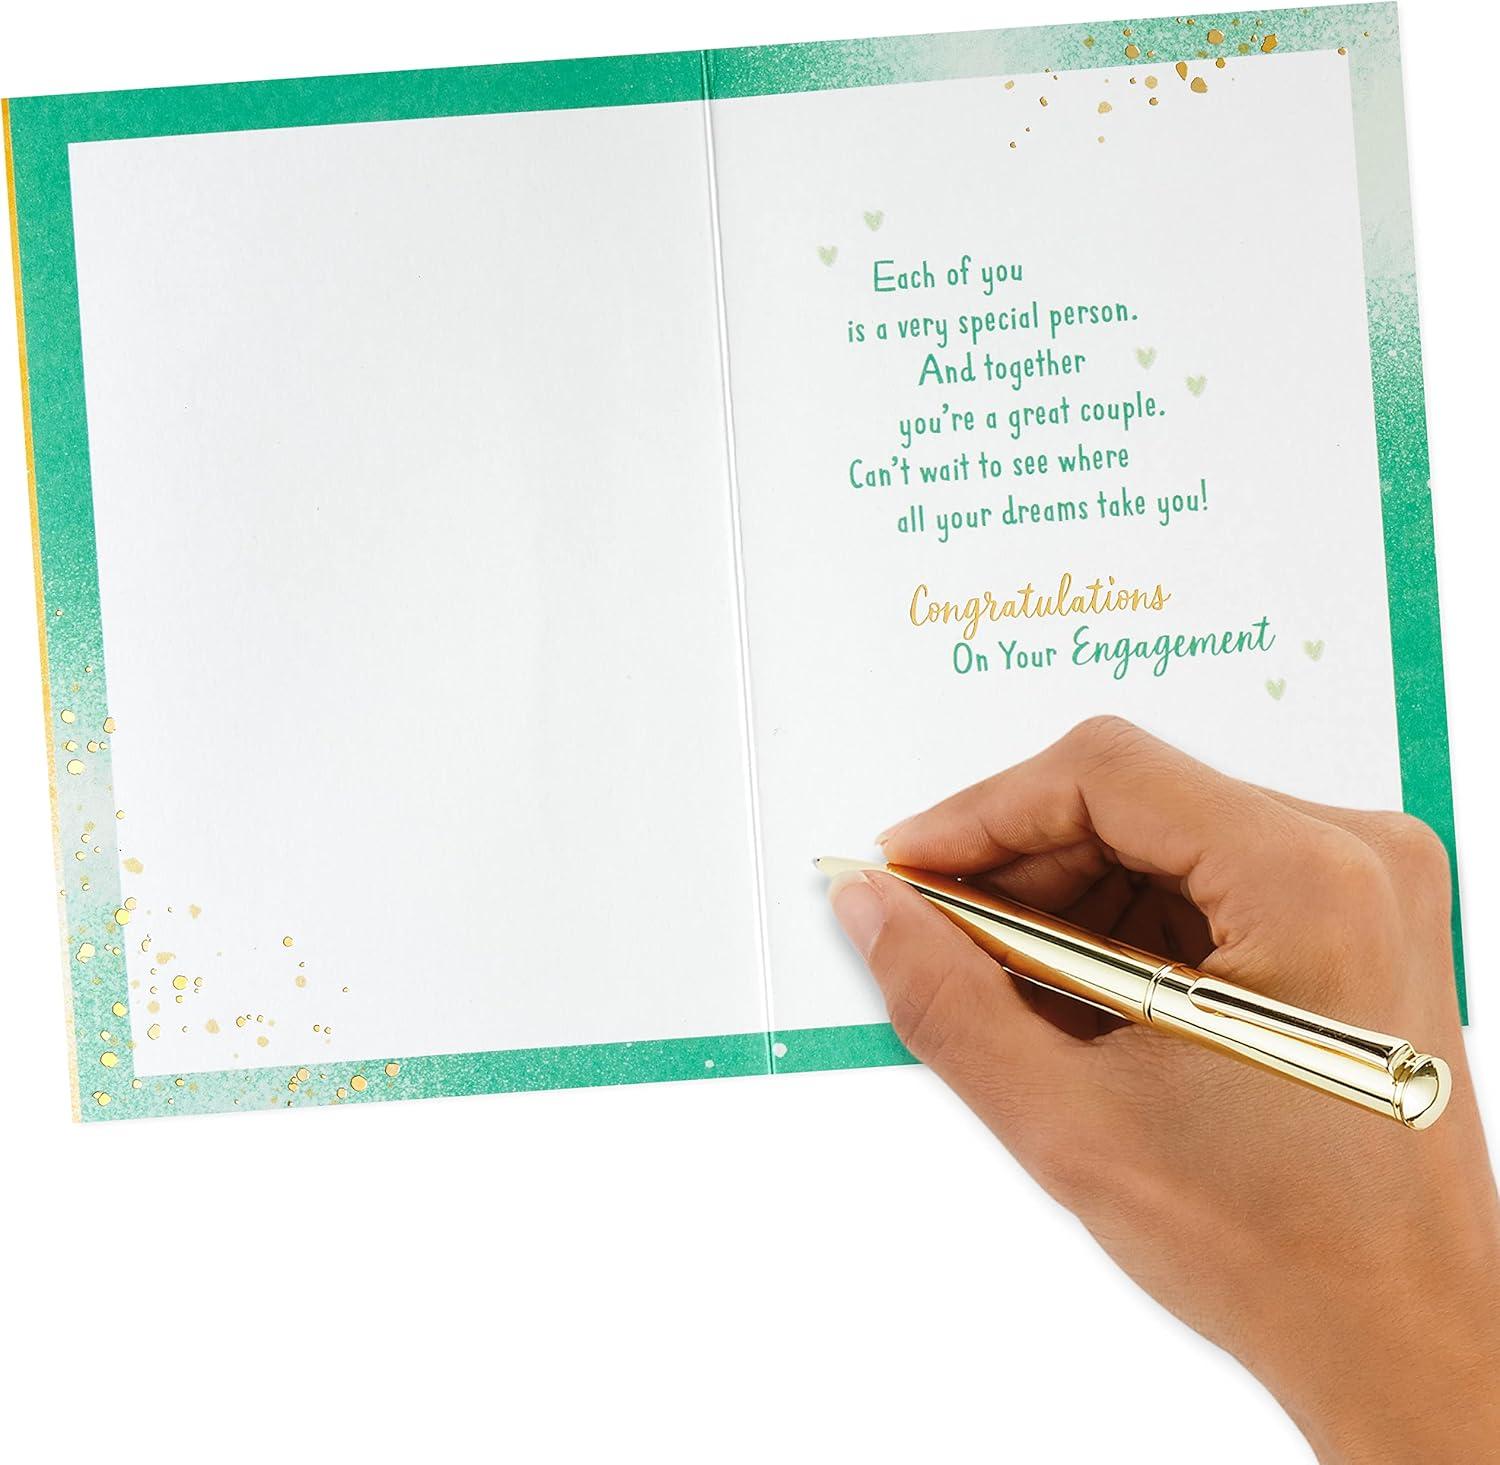 Each of you
is a very special person.
And together
you're a great couple.
Can't wait to see where
all your dreams take you!
Congratulations
On Your Engagement